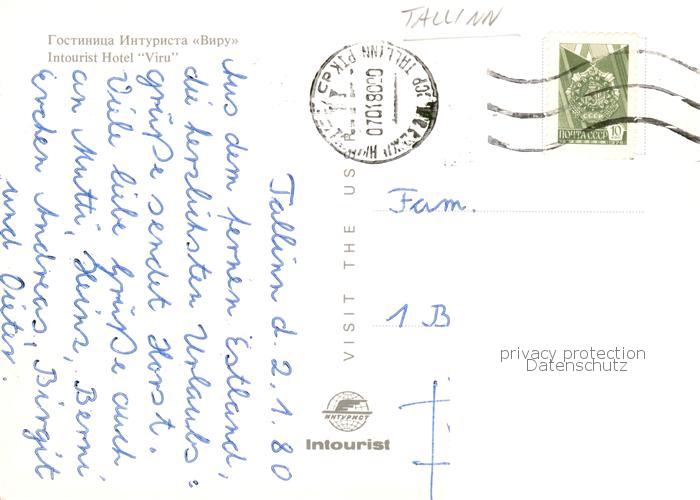 TALLINN
Гостиница Интуриста «Виру»
Intourist Hotel "Viru"
Tallinn d. 2.1.80
Aus dem fernen Estland,
die herzlichsten Urlaubs=
grüße sendet Horst.
Viele liebe Grüße auch
an Mutti, Heinz, Berni
Evchen Andreas, Birgit
und Dieter.
VISIT THE US
TALLINN PTK
07018000
ПОЧТА СССР 10
Fam.
1 B
privacy protection
Datenschutz
ИНТУРИСТ
Intourist